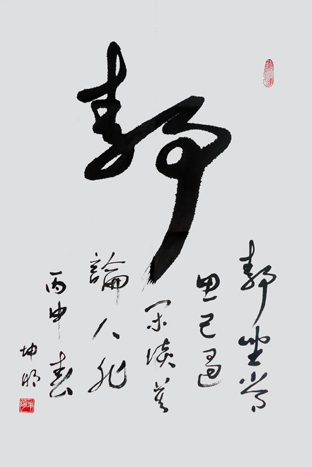 靜
靜坐常
思己過
閑談莫
論人非
丙申春
坤